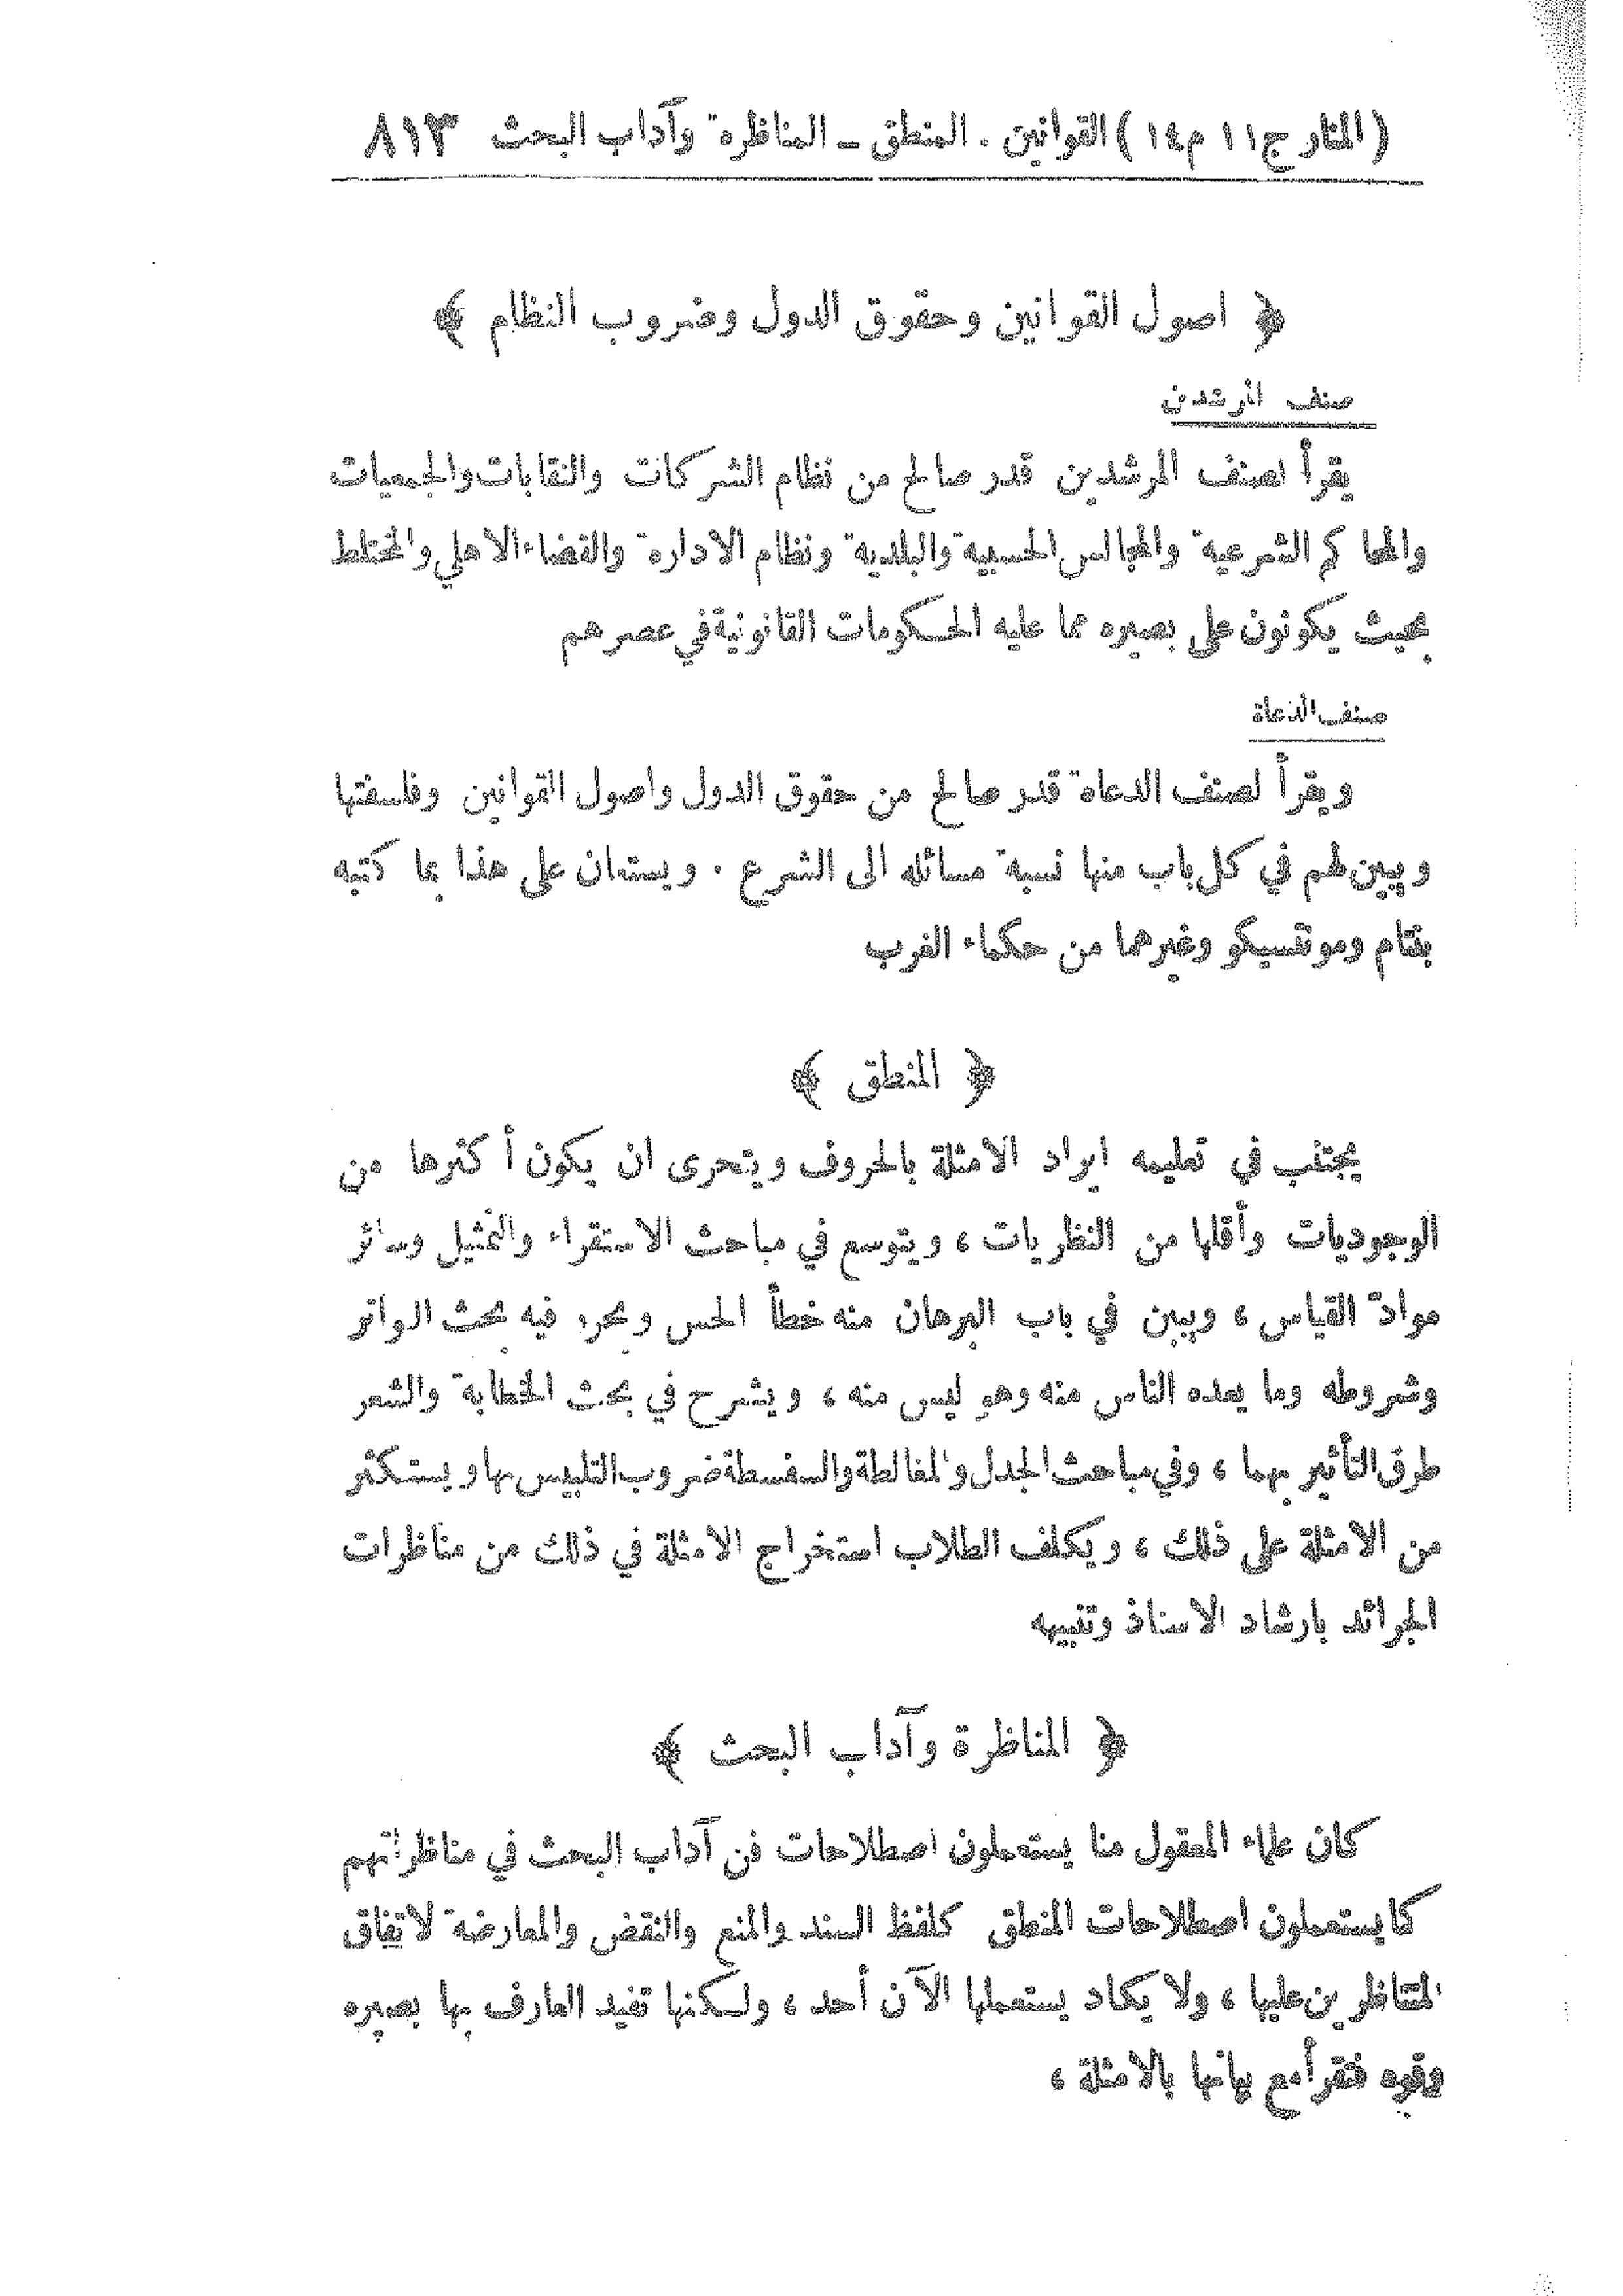 (المنار ج ١١ م ١٤) القوانين . المنطق ـ المناظرة وآداب البحث ٨١٣
﴿ اصول القوانين وحقوق الدول وضروب النظام ﴾
صنف المرشدين
يقرأ لصنف المرشدين قدر صالح من نظام الشركات والنقابات والجمعيات
والمحاكم الشرعية والمجالس الحسبية والبلدية ونظام الادارة والقضاء الاهلي والمختلط
بحيث يكونون على بصيره مما عليه الحكومات القانونية في عصرهم
صنف الدعاة
ويقرأ لصنف الدعاة قدر صالح من حقوق الدول واصول القوانين وفلسفتها
ويبين لهم في كل باب منها نسبة مسائله الى الشرع . ويستعان على هذا بما كتبه
بنتام ومونتسيكو وغيرهما من حكماء الغرب
﴿ المنطق ﴾
يجتنب في تعليمه ايراد الامثلة بالحروف ويتحرى ان يكون أكثرها من
الوجوديات وأقلها من النظريات ، ويتوسع في مباحث الاستقراء والتمثيل وسائر
موادة القياس ، ويبين في باب البرهان منه خطأ الحس ويحرر فيه بحث التواتر
وشروطه وما يعده الناس منه وهو ليس منه ، ويشرح في بحث الخطابة والشعر
طرق التأثير بهما ، وفي مباحث الجدل والمغالطة والسفسطة ضروب التلبيس بها ويستكثر
من الامثلة على ذلك ، ويكلف الطلاب استخراج الامثلة في ذلك من مناظرات
الجرائد بارشاد الاستاذ وتنبيهه
﴿ المناظرة وآداب البحث ﴾
كان علماء المعقول منا يستعملون اصطلاحات فن آداب البحث في مناظراتهم
كما يستعملون اصطلاحات المنطق كلفظ السند والمنع والنقض والمعارضة لاتفاق
المتناظرين عليها ، ولا يكاد يستعملها الآن أحد ، ولكنها تفيد العارف بها بصيره
وقوه فتقرأ مع بيانها بالامثلة ،